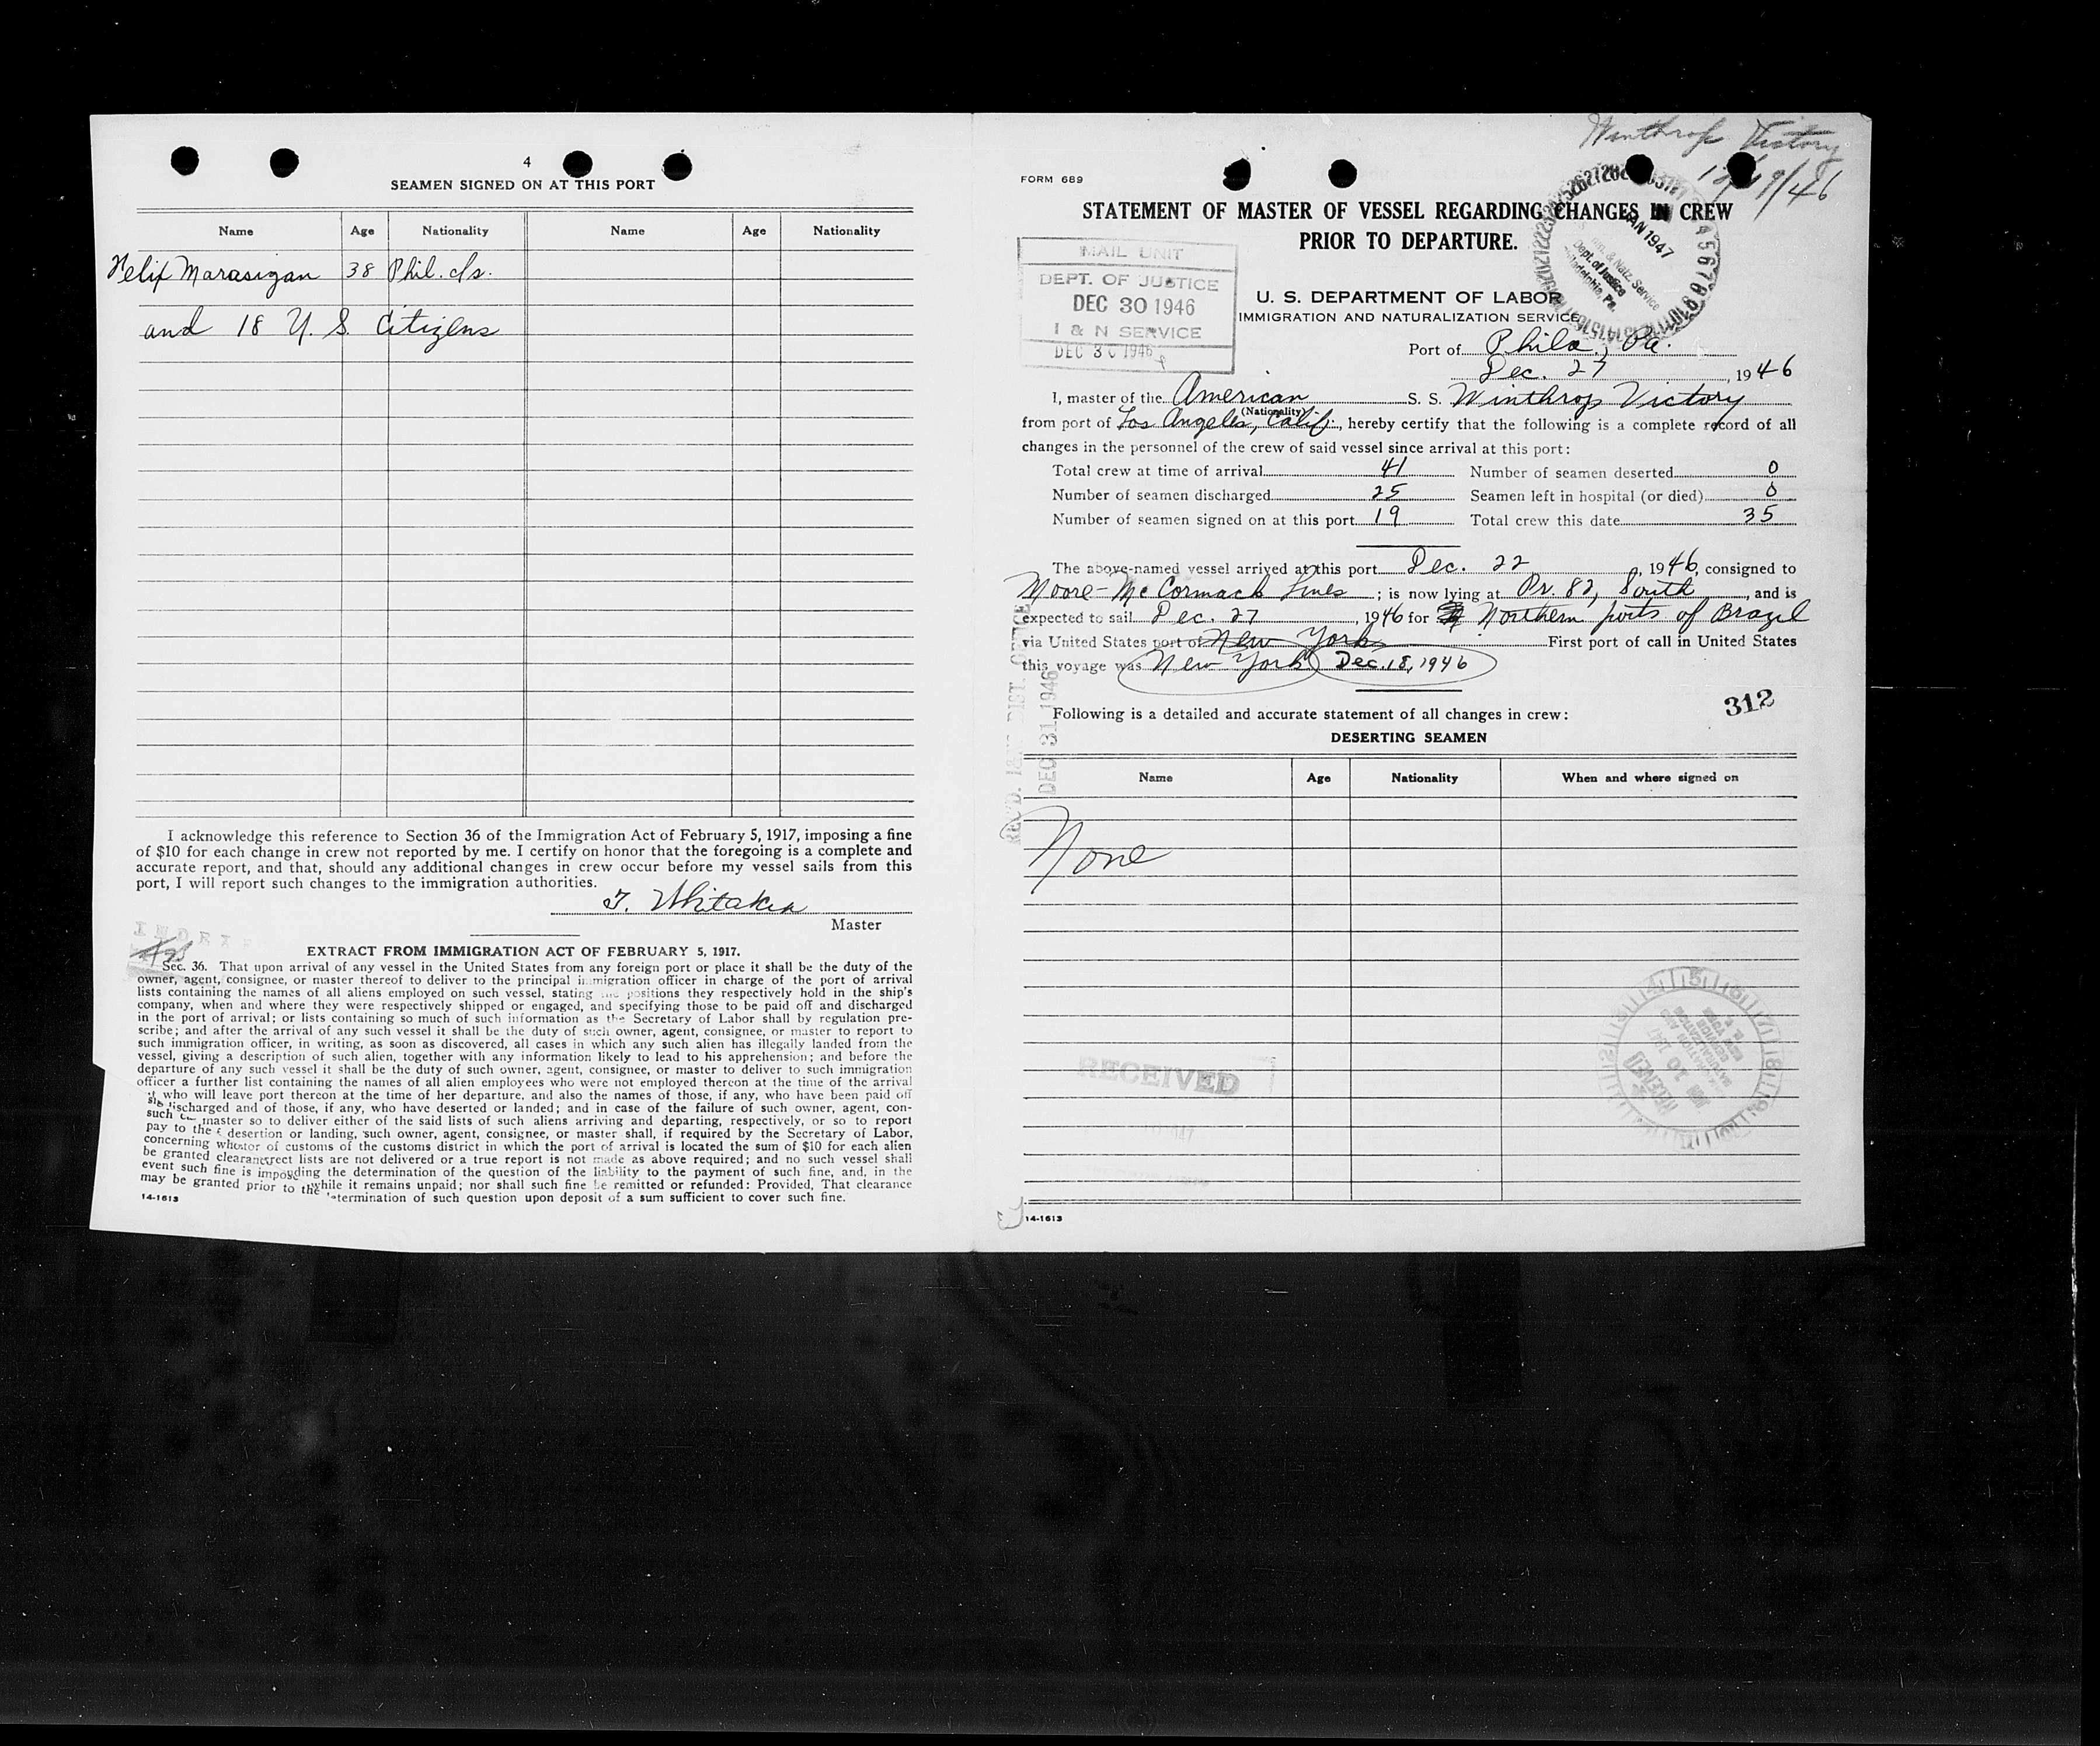 4
SEAMEN SIGNED ON AT THIS PORT
Name Age Nationality Name Age Nationality
Felix Marasigan 38 Phil. c/s.
and 18 U. S. Citizens
I acknowledge this reference to Section 36 of the Immigration Act of February 5, 1917, imposing a fine
of $10 for each change in crew not reported by me. I certify on honor that the foregoing is a complete and
accurate report, and that, should any additional changes in crew occur before my vessel sails from this
port, I will report such changes to the immigration authorities.
T. Whitaker
Master
EXTRACT FROM IMMIGRATION ACT OF FEBRUARY 5, 1917.
Sec. 36. That upon arrival of any vessel in the United States from any foreign port or place it shall be the duty of the
owner, agent, consignee, or master thereof to deliver to the principal immigration officer in charge of the port of arrival
lists containing the names of all aliens employed on such vessel, stating the positions they respectively hold in the ship's
company, when and where they were respectively shipped or engaged, and specifying those to be paid off and discharged
in the port of arrival; or lists containing so much of such information as the Secretary of Labor shall by regulation pre-
scribe; and after the arrival of any such vessel it shall be the duty of such owner, agent, consignee, or master to report to
such immigration officer, in writing, as soon as discovered, all cases in which any such alien has illegally landed from the
vessel, giving a description of such alien, together with any information likely to lead to his apprehension; and before the
departure of any such vessel it shall be the duty of such owner, agent, consignee, or master to deliver to such immigration
officer a further list containing the names of all alien employees who were not employed thereon at the time of the arrival
who will leave port thereon at the time of her departure, and also the names of those, if any, who have been paid off
discharged and of those, if any, who have deserted or landed; and in case of the failure of such owner, agent, con-
such master so to deliver either of the said lists of such aliens arriving and departing, respectively, or so to report
pay to the desertion or landing, such owner, agent, consignee, or master shall, if required by the Secretary of Labor,
concerning of customs of the customs district in which the port of arrival is located the sum of $10 for each alien
be granted lists are not delivered or a true report is not made as above required; and no such vessel shall
event such fine is the determination of the question of the liability to the payment of such fine, and, in the
may be granted prior to the while it remains unpaid; nor shall such fine be remitted or refunded: Provided, That clearance
determination of such question upon deposit of a sum sufficient to cover such fine.
14-1613
Winthrop Victory
12/19/46
FORM 689
STATEMENT OF MASTER OF VESSEL REGARDING CHANGES IN CREW
PRIOR TO DEPARTURE.
MAIL UNIT
DEPT. OF JUSTICE
DEC 30 1946
I & N SERVICE
DEC 30 1946
JAN 1947
Imm. & Natz. Service
Dept. of Justice
Philadelphia, Pa.
U. S. DEPARTMENT OF LABOR
IMMIGRATION AND NATURALIZATION SERVICE
Port of Phila., Pa.
Dec. 27, 1946
I, master of the American S. S. Winthrop Victory
(Nationality)
from port of Los Angeles, Calif., hereby certify that the following is a complete record of all
changes in the personnel of the crew of said vessel since arrival at this port:
Total crew at time of arrival 41 Number of seamen deserted 0
Number of seamen discharged 25 Seamen left in hospital (or died) 0
Number of seamen signed on at this port 19 Total crew this date 35
The above-named vessel arrived at this port Dec. 22, 1946, consigned to
Moore-McCormack Lines; is now lying at Pr. 82, South, and is
expected to sail Dec. 27, 1946 for Northern ports of Brazil
via United States port of New York First port of call in United States
this voyage was New York Dec. 18, 1946
REC'D. I&NS DIST. OFFICE
DEC 31 1946
312
Following is a detailed and accurate statement of all changes in crew:
DESERTING SEAMEN
Name Age Nationality When and where signed on
None
RECEIVED
14-1613